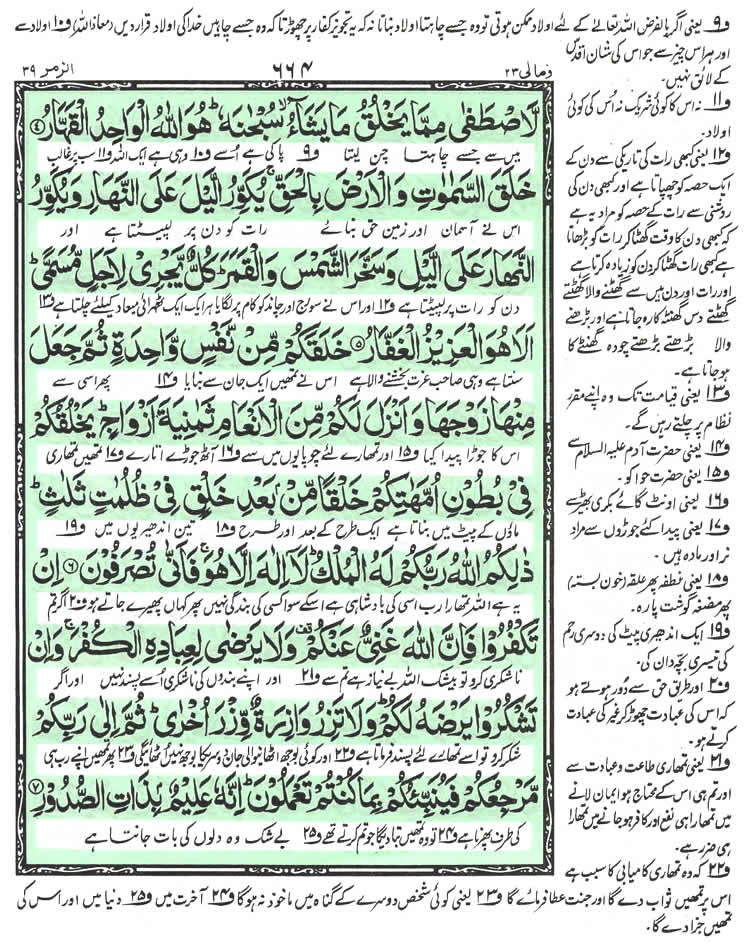 و۹ یعنی اگر بالفرض اللہ تعالےٰ کے لئے اولاد ممکن ہوتی تو وہ جسے چاہتا اولاد بناتا نہ کہ یہ تجویز کفار پر چھوڑتا کہ وہ جسے چاہیں خدا کی اولاد قرار دیں (معاذ اللہ) و۱۰ اولاد سے
اور ہر اس چیز سے جو اس کی شان اقدس
کے لائق نہیں۔
ومالی ۲۳
۶۶۴
الزمر ۳۹
لَّاصْطَفٰى مِمَّا يَخْلُقُ مَا يَشَآءُ ۙ سُبْحٰنَهٗ ؕ هُوَ اللّٰهُ الْوَاحِدُ الْقَهَّارُ ﴿۴﴾
میں سے جسے چاہتا چن لیتا و۹ پاکی ہے اُسے و۱۰ وہی ہے ایک اللہ و۱۱ سب پر غالب
خَلَقَ السَّمٰوٰتِ وَالْاَرْضَ بِالْحَقِّ ۚ يُكَوِّرُ الَّيْلَ عَلَى النَّهَارِ وَيُكَوِّرُ
اس نے آسمان اور زمین حق بنائے رات کو دن پر لپیٹتا ہے اور
النَّهَارَ عَلَى الَّيْلِ وَسَخَّرَ الشَّمْسَ وَالْقَمَرَ ؕ كُلٌّ يَّجْرِىْ لِاَجَلٍ مُّسَمًّى ؕ
دن کو رات پر لپیٹتا ہے و۱۲ اور اس نے سورج اور چاند کو کام پر لگایا ہر ایک ایک ٹھہرائی میعاد کیلئے چلتا ہے و۱۳
اَلَا هُوَ الْعَزِيْزُ الْغَفَّارُ ﴿۵﴾ خَلَقَكُمْ مِّنْ نَّفْسٍ وَّاحِدَةٍ ثُمَّ جَعَلَ
سنتا ہے وہی صاحب عزت بخشنے والا ہے اس نے تمہیں ایک جان سے بنایا و۱۴ پھر اسی سے
مِنْهَا زَوْجَهَا وَاَنْزَلَ لَكُمْ مِّنَ الْاَنْعَامِ ثَمٰنِيَةَ اَزْوَاجٍ ؕ يَخْلُقُكُمْ
اس کا جوڑا پیدا کیا و۱۵ اور تمہارے لئے چوپایوں میں سے و۱۶ آٹھ جوڑے اتارے و۱۷ تمہیں تمہاری
فِىْ بُطُوْنِ اُمَّهٰتِكُمْ خَلْقًا مِّنْۢ بَعْدِ خَلْقٍ فِىْ ظُلُمٰتٍ ثَلٰثٍ ؕ
ماؤں کے پیٹ میں بناتا ہے ایک طرح کے بعد اور طرح و۱۸ تین اندھیریوں میں و۱۹
ذٰلِكُمُ اللّٰهُ رَبُّكُمْ لَهُ الْمُلْكُ ؕ لَاۤ اِلٰهَ اِلَّا هُوَ ۚ فَاَنّٰى تُصْرَفُوْنَ ﴿۶﴾ اِنْ
یہ ہے اللہ تمہارا رب اسی کی بادشاہی ہے اس کے سوا کسی کی بندگی نہیں پھر کہاں پھیرے جاتے ہو و۲۰ اگر تم
تَكْفُرُوْا فَاِنَّ اللّٰهَ غَنِىٌّ عَنْكُمْ ۟ وَلَا يَرْضٰى لِعِبَادِهِ الْكُفْرَ ۚ وَاِنْ
ناشکری کرو تو بیشک اللہ بے نیاز ہے تم سے و۲۱ اور اپنے بندوں کی ناشکری اُسے پسند نہیں اور اگر
تَشْكُرُوْا يَرْضَهُ لَكُمْ ؕ وَلَا تَزِرُ وَازِرَةٌ وِّزْرَ اُخْرٰى ؕ ثُمَّ اِلٰى رَبِّكُمْ
شکر کرو تو اسے تمہارے لئے پسند فرماتا ہے و۲۲ اور کوئی بوجھ اٹھانے والی جان دوسرے کا بوجھ نہیں اٹھائے گی و۲۳ پھر تمہیں اپنے رب ہی
مَّرْجِعُكُمْ فَيُنَبِّئُكُمْ بِمَا كُنْتُمْ تَعْمَلُوْنَ ؕ اِنَّهٗ عَلِيْمٌۢ بِذَاتِ الصُّدُوْرِ ﴿۷﴾
کی طرف پھرنا ہے و۲۴ تو وہ تمہیں بتا دے گا جو تم کرتے تھے و۲۵ بے شک وہ دلوں کی بات جانتا ہے
و۱۱ نہ اس کا کوئی شریک نہ اُس کی کوئی
اولاد۔
و۱۲ یعنی کبھی رات کی تاریکی سے دن کے
ایک حصہ کو چھپاتا ہے اور کبھی دن کی
روشنی سے رات کے حصہ کو مراد یہ ہے
کہ کبھی دن کا وقت گھٹا کر رات کو بڑھاتا
ہے کبھی رات گھٹا کر دن کو زیادہ کرتا ہے
اور رات اور دن میں سے گھٹنے والا گھٹتے
گھٹتے دس گھنٹہ کا رہ جاتا ہے اور بڑھنے
والا بڑھتے بڑھتے چودہ گھنٹے کا
ہو جاتا ہے۔
و۱۳ یعنی قیامت تک وہ اپنے مقرر
نظام پر چلتے رہیں گے۔
و۱۴ یعنی حضرت آدم علیہ السلام سے
و۱۵ یعنی حضرت حوا کو۔
و۱۶ یعنی اونٹ گائے بکری بھیڑ سے
و۱۷ یعنی پیدا کئے جوڑوں سے مراد
نر اور مادہ ہیں۔
و۱۸ یعنی نطفہ پھر علقہ (خون بستہ)
پھر مضغہ گوشت پارہ۔
و۱۹ ایک اندھیری پیٹ کی دوسری رحم
کی تیسری بچہ دان کی۔
و۲۰ اور طریق حق سے دُور ہوتے ہو
کہ اس کی عبادت چھوڑ کر غیر کی عبادت
کرتے ہو۔
و۲۱ یعنی تمہاری طاعت و عبادت سے
اور تم ہی اس کے محتاج ہو ایمان لانے
میں تمہارا ہی نفع اور کافر ہو جانے میں تمہارا
ہی ضرر ہے۔
و۲۲ کہ وہ تمہاری کامیابی کا سبب ہے
اس پر تمہیں ثواب دے گا اور جنت عطا فرمائے گا و۲۳ یعنی کوئی شخص دوسرے کے گناہ میں ماخوذ نہ ہوگا و۲۴ آخرت میں و۲۵ دنیا میں اور اس کی
تمہیں جزا دے گا۔